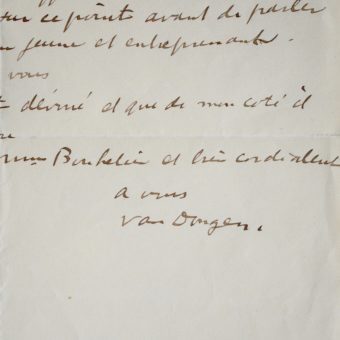 sur ce point avant de parler
jeune et entreprenant.
vous
dévoué et que de mon coté il
re
Bouhelier et bien cordialement
a vous
Van Dongen.